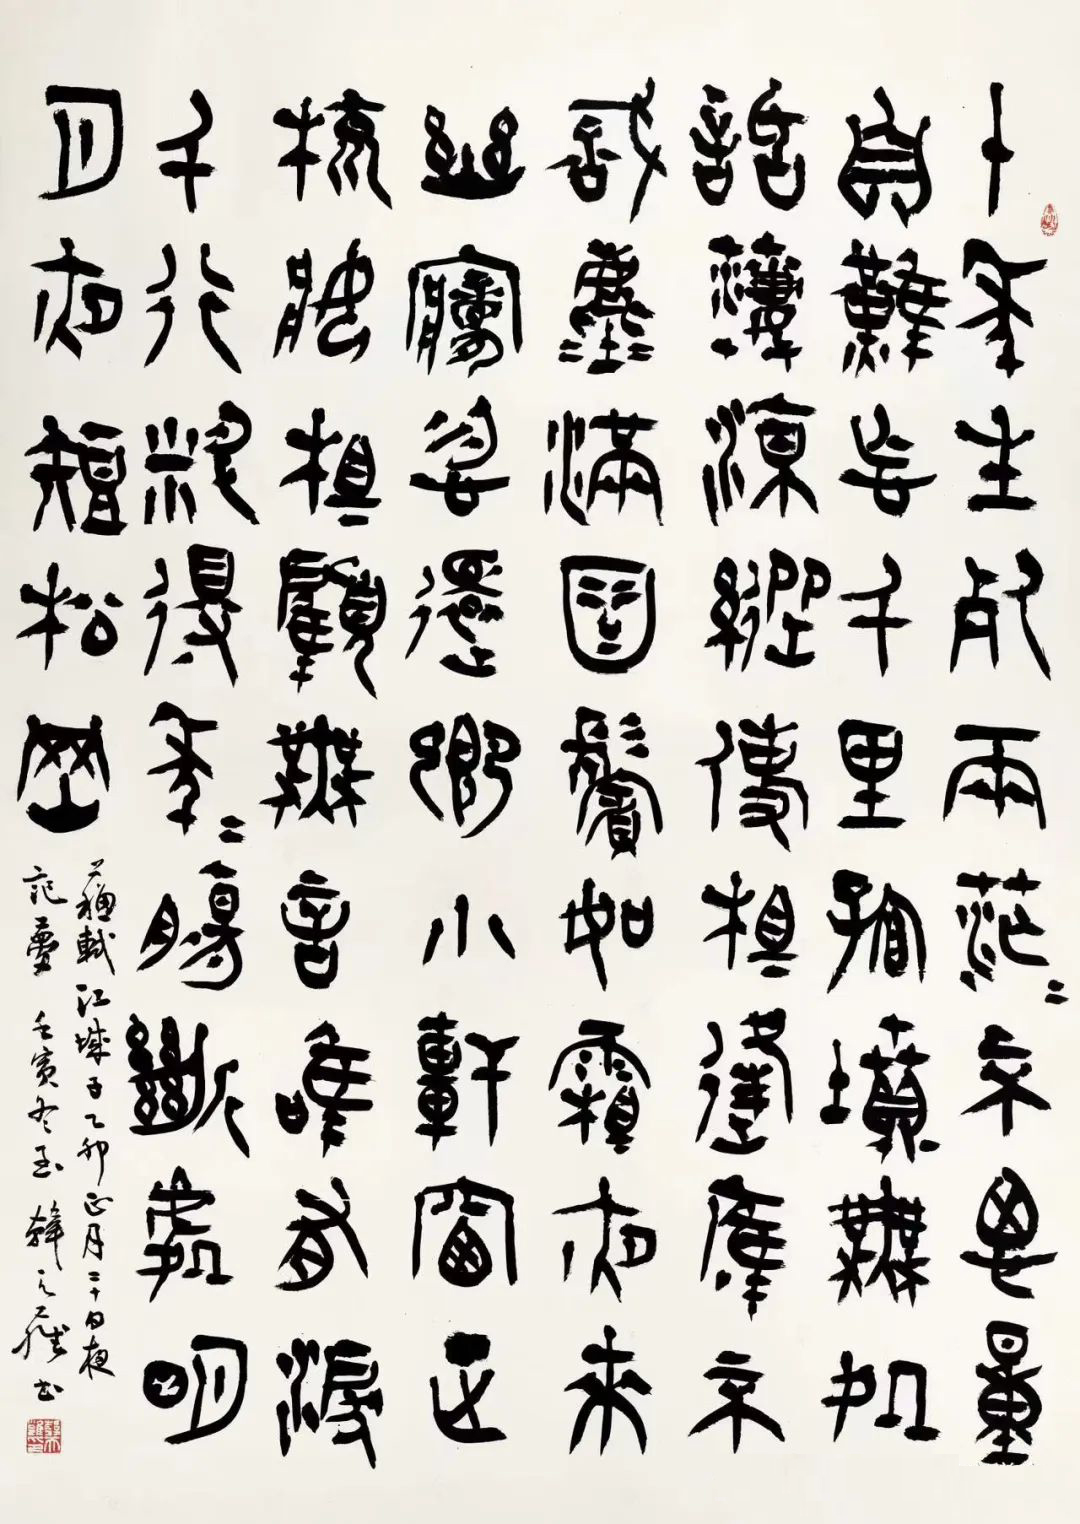 十年生死兩茫〻不思量
自難忘千里孤墳無處
話淒涼縱使相逢應不
識塵滿面鬢如霜夜來
幽夢忽還鄉小軒窗正
梳妝相顧無言唯有淚
千行料得年〻腸斷處明
月夜短松岡
蘇軾江城子乙卯正月二十日夜
記夢 壬寅冬至 韓天雍书